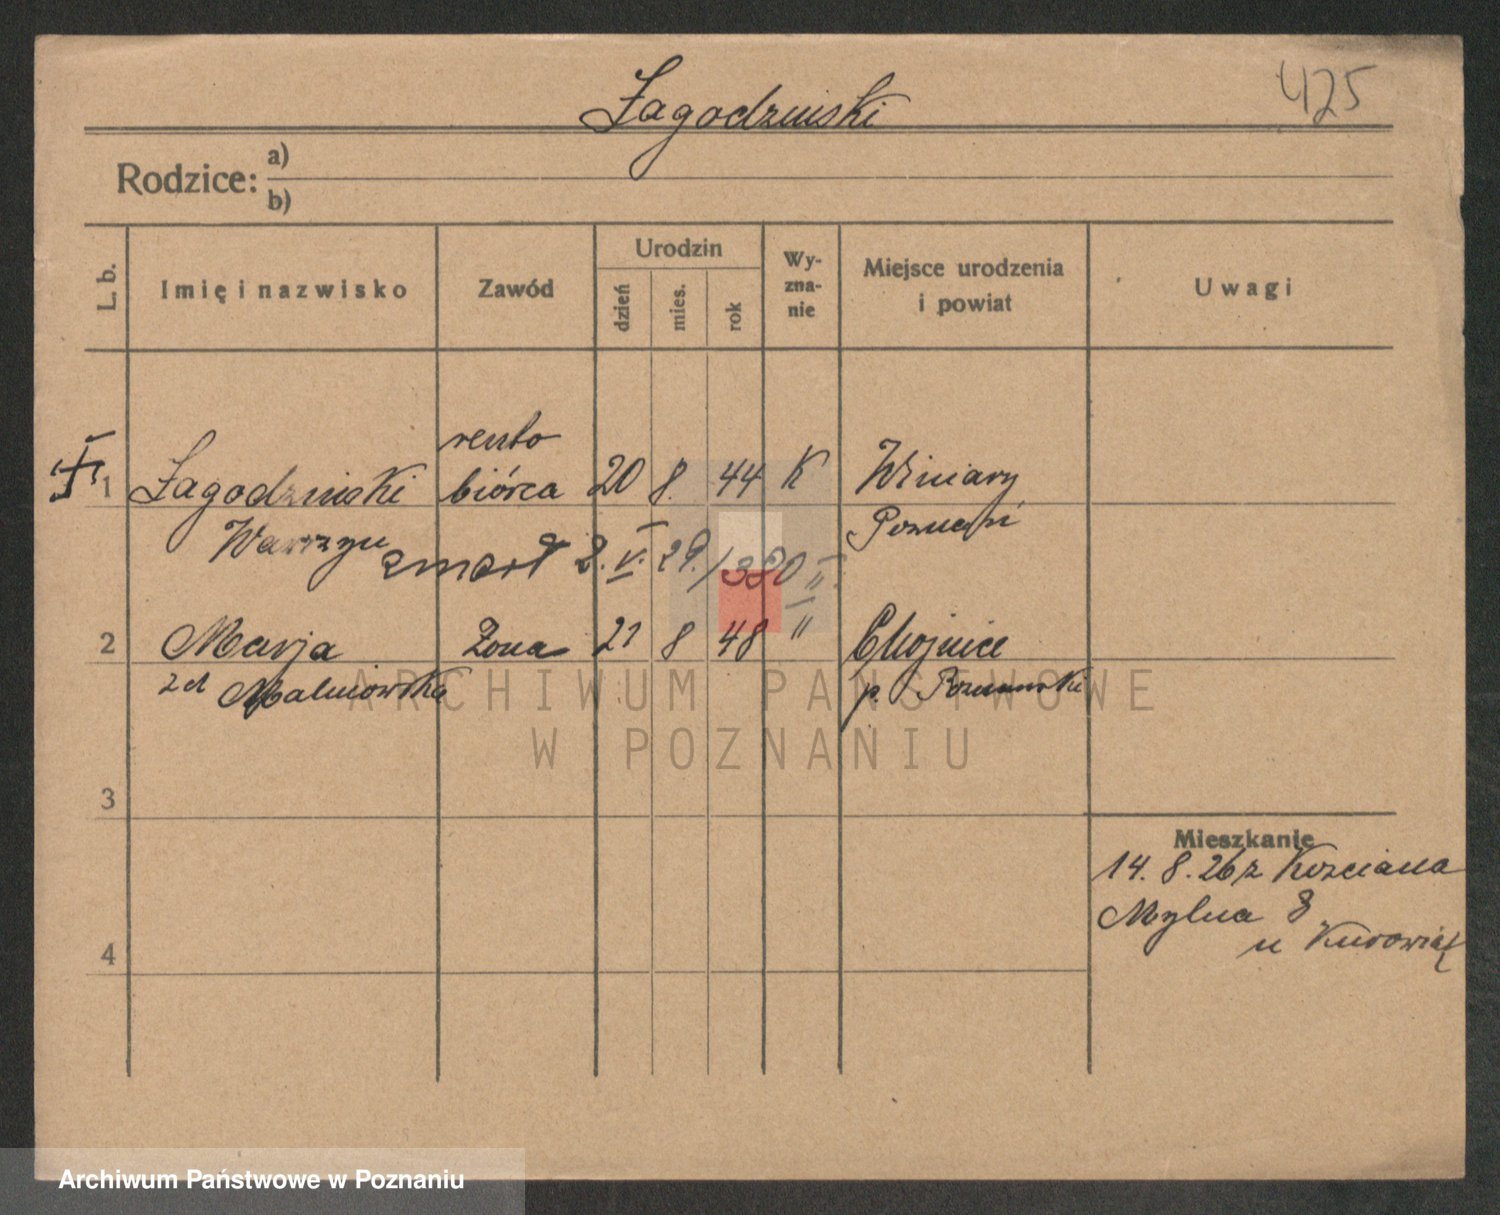 Łagodzinski
425
Rodzice: a)
b)
L. b.
Imię i nazwisko
Zawód
Urodzin
dzień
mies.
rok
Wy-
zna-
nie
Miejsce urodzenia
i powiat
Uwagi
rento
1 Łagodzinski biórca 20 8. 44 K Winiary
Wawrzyn Poznań
zmarł 2. V. 29. / 380 II.
2 Marja Żona 21 8 48 " Chojnice
zd Malniowska p. Poznański
ARCHIWUM PAŃSTWOWE
W POZNANIU
3
Mieszkanie
14. 8. 26 z Kościana
Mylna 8
4
u
Archiwum Państwowe w Poznaniu